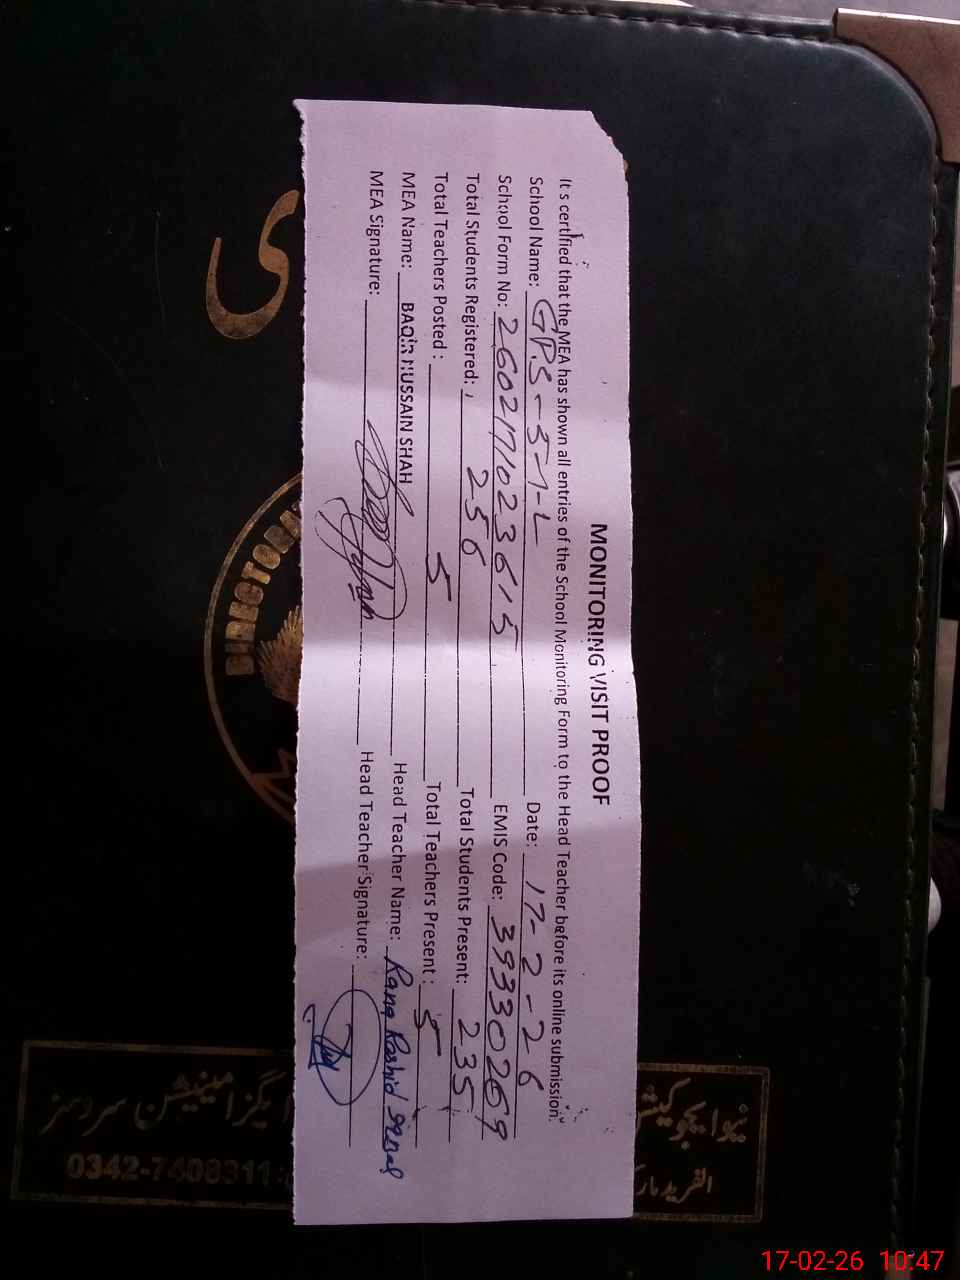 MONITORING VISIT PROOF
It s certified that the MEA has shown all entries of the School Monitoring Form to the Head Teacher before its online submission.
School Name: GPS-5-1-L Date: 17-2-26
School Form No: 2602171023615 EMIS Code: 39330269
Total Students Registered: 256 Total Students Present: 235
Total Teachers Posted : 5 Total Teachers Present : 5
MEA Name: BAQIR HUSSAIN SHAH Head Teacher Name: Rana Rashid
MEA Signature: Head Teacher Signature:
ی
نیو ایجوکیشن
یگزامینیشن سروسز
الفرید مار
0342-7408311
17-02-26 10:47